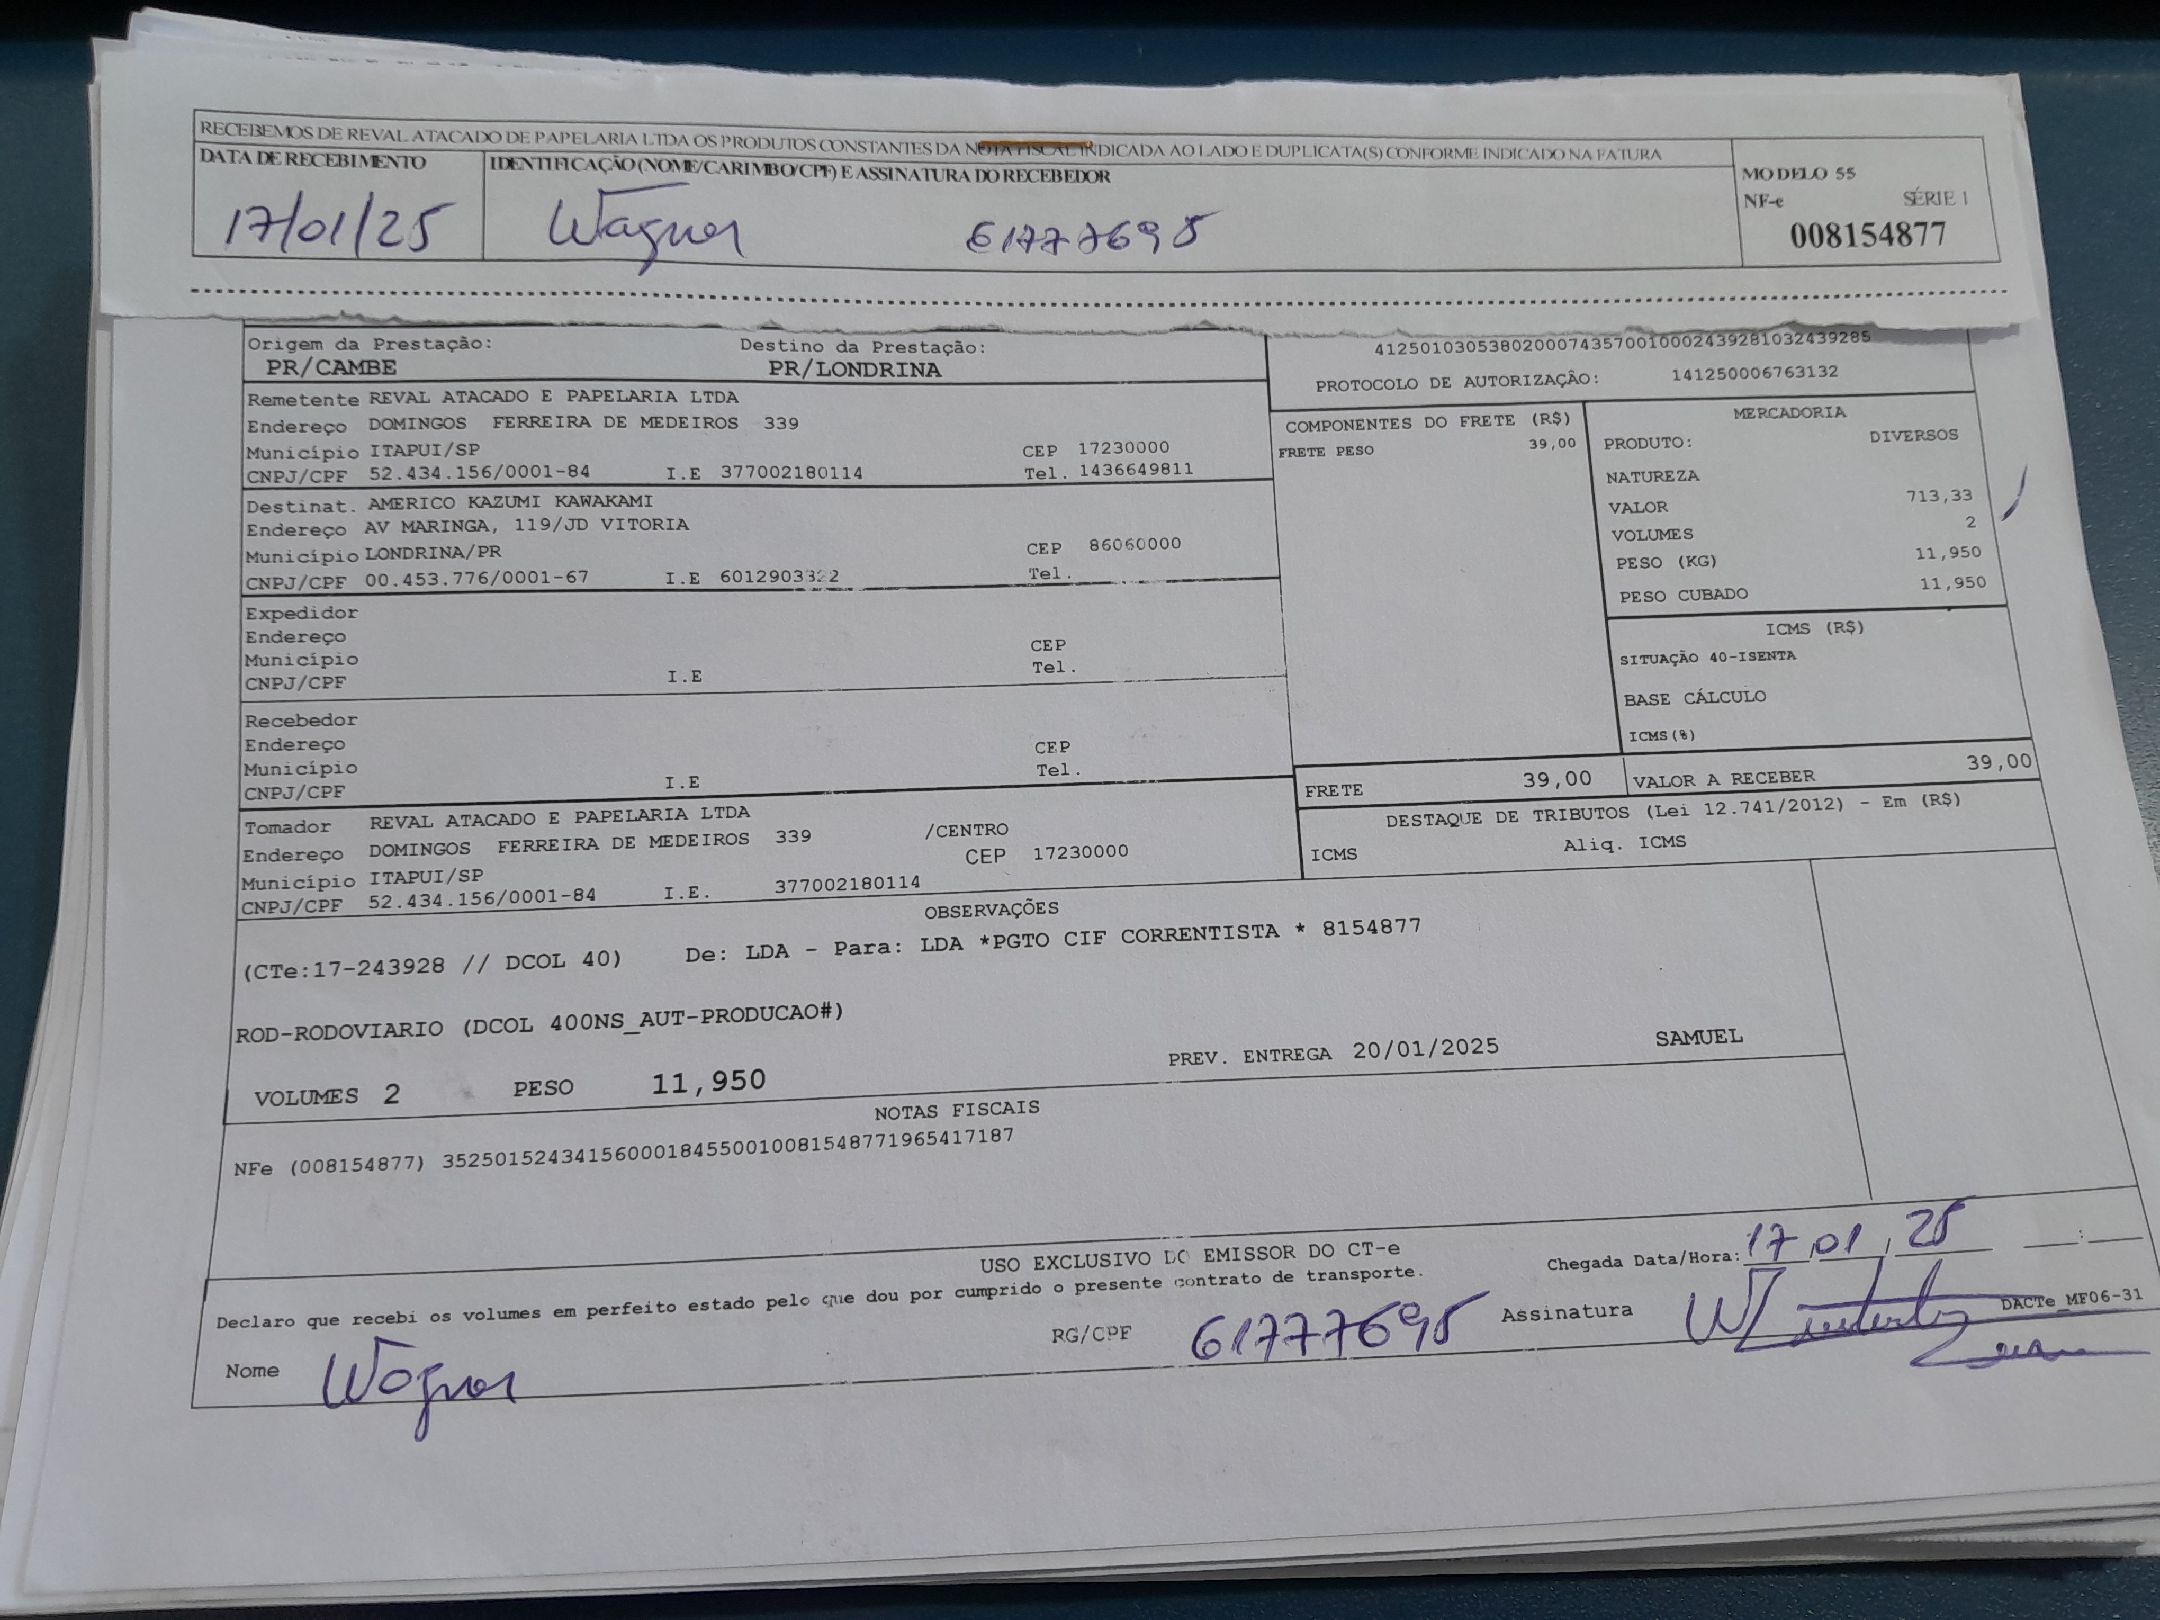 RECEBEMOS DE REVAL ATACADO DE PAPELARIA LTDA OS PRODUTOS CONSTANTES DA NOTA FISCAL INDICADA AO LADO E DUPLICATA(S) CONFORME INDICADO NA FATURA
DATA DE RECEBIMENTO IDENTIFICAÇÃO (NOME/CARIMBO/CPF) E ASSINATURA DO RECEBEDOR
MODELO 55
NF-e SÉRIE 1
008154877
17/01/25 Wagner 61777695
Origem da Prestação: Destino da Prestação:
PR/CAMBE PR/LONDRINA
41250103053802000743570010002439281032439285
PROTOCOLO DE AUTORIZAÇÃO: 141250006763132
Remetente REVAL ATACADO E PAPELARIA LTDA
Endereço DOMINGOS FERREIRA DE MEDEIROS 339
Município ITAPUI/SP CEP 17230000
CNPJ/CPF 52.434.156/0001-84 I.E 377002180114 Tel. 1436649811
Destinat. AMERICO KAZUMI KAWAKAMI
Endereço AV MARINGA, 119/JD VITORIA
Município LONDRINA/PR CEP 86060000
CNPJ/CPF 00.453.776/0001-67 I.E Tel.
Expedidor
Endereço
Município CEP
CNPJ/CPF I.E Tel.
Recebedor
Endereço
Município CEP
CNPJ/CPF I.E Tel.
Tomador REVAL ATACADO E PAPELARIA LTDA
Endereço DOMINGOS FERREIRA DE MEDEIROS 339 /CENTRO
Município ITAPUI/SP CEP 17230000
CNPJ/CPF 52.434.156/0001-84 I.E. 377002180114
COMPONENTES DO FRETE (R$)
FRETE PESO 39,00
MERCADORIA
PRODUTO: DIVERSOS
NATUREZA
VALOR 713,33
VOLUMES 2
PESO (KG) 11,950
PESO CUBADO 11,950
ICMS (R$)
SITUAÇÃO 40-ISENTA
BASE CÁLCULO
ICMS(%)
FRETE 39,00 VALOR A RECEBER 39,00
DESTAQUE DE TRIBUTOS (Lei 12.741/2012) - Em (R$)
ICMS Aliq. ICMS
OBSERVAÇÕES
(CTe:17-243928 // DCOL 40) De: LDA - Para: LDA *PGTO CIF CORRENTISTA * 8154877
ROD-RODOVIARIO (DCOL 400NS_AUT-PRODUCAO#)
VOLUMES 2 PESO 11,950 PREV. ENTREGA 20/01/2025 SAMUEL
NOTAS FISCAIS
NFe (008154877) 35250152434156000184550010081548771965417187
USO EXCLUSIVO DO EMISSOR DO CT-e
Chegada Data/Hora: 17,01,25 :
Declaro que recebi os volumes em perfeito estado pelo que dou por cumprido o presente contrato de transporte.
DACTe_MF06-31
Nome Wagner RG/CPF 61777695 Assinatura